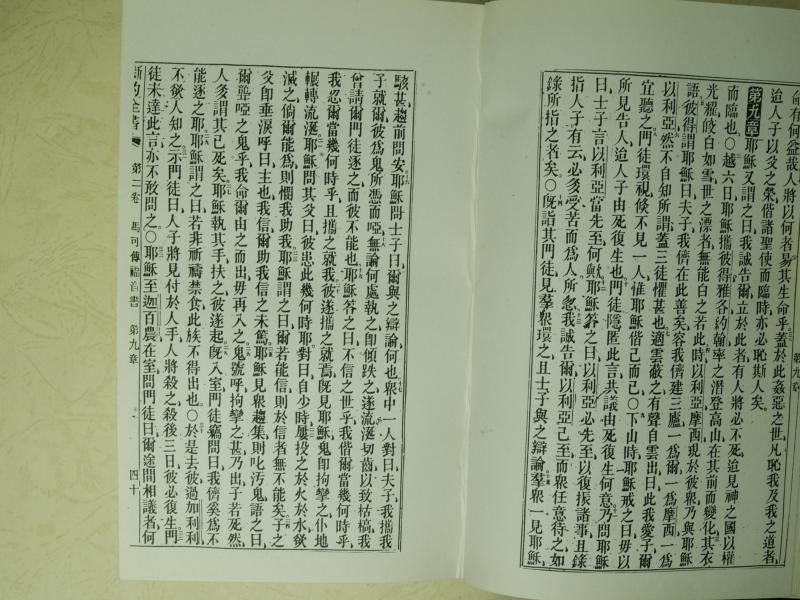 命有何益哉人將以何者易其生命乎蓋於此姦惡之世凡恥我及我之道者
迨人子以父之榮偕諸聖使而臨時亦必恥斯人矣
第九章耶穌又謂之曰我誠告爾立於此者有人將必不死迨見神之國以權
而臨也○越六日耶穌攜彼得雅各約翰率之潛登高山在其前而變化其衣
光耀皎白如雪世之漂者無能白之若此時以利亞摩西現於彼衆乃與耶穌
語彼得謂耶穌曰夫子我儕在此善矣容我儕建三廬一爲爾一爲摩西一爲
以利亞然不自知所謂蓋三徒懼甚也適雲蔽之有聲自雲出曰此我愛子爾
宜聽之門徒環視倏不見一人惟耶穌偕己而已○下山時耶穌戒之曰毋以
所見告人迨人子由死復生也門徒隱匿此言共議由死復生何意乃問耶穌
曰士子言以利亞當先至何歟耶穌答之曰以利亞必先至以復振諸事且錄
指人子有云必多受苦而爲人所忽我誠告爾以利亞已至而衆任意待之如
錄所指之者矣○旣詣其門徒見羣衆環之且士子與之辯論羣衆一見耶穌
第九章
駭甚趨前問安耶穌問士子曰爾與之辯論何也衆中一人對曰夫子我攜我
子就爾彼爲鬼所憑而啞無論何處執之卽傾跌之遂流涎切齒以致枯槁我
曾請爾門徒逐之而彼不能也耶穌答之曰不信之世乎我偕爾當幾何時乎
我忍爾當幾何時乎且攜之就我彼遂攜之就焉旣見耶穌鬼卽拘攣之仆地
輾轉流涎耶穌問其父曰彼患此幾何時耶對曰自少時屢投之於火於水欲
滅之倘爾能爲則憫我助我耶穌謂之曰爾若能信則於信者無不能矣子之
父卽垂淚呼曰主也我信爾助我信之未篤耶穌見衆趨集則叱汚鬼語之曰
爾聾啞之鬼乎我命爾由之而出毋再入之鬼號呼拘攣之甚乃出子若死然
人多謂其已死矣耶穌執其手扶之彼遂起旣入室門徒竊問曰我儕奚爲不
能逐之耶耶穌謂之曰若非祈禱禁食此族不得出也○於是去彼過加利利
不欲人知之示門徒曰人子將見付於人手人將殺之殺後三日彼必復生門
徒未達此言亦不敢問之○耶穌至迦百農在室問門徒曰爾途間相議者何
新約全書
第二卷
馬可傳福音書
第九章
四十